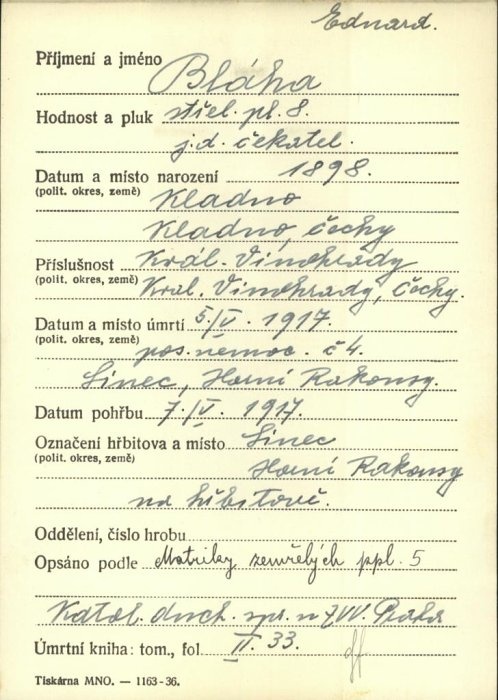 Eduard.
Příjmení a jméno Bláha
Hodnost a pluk střel. pl. 8.
j. d. čekatel.
Datum a místo narození 1898.
(polit. okres, země) Kladno
Kladno, Čechy
Příslušnost Král. Vinohrady
(polit. okres, země) Král. Vinohrady, Čechy.
Datum a místo úmrtí 5/V. 1917.
(polit. okres, země)
pos. nemoc. č 4.
Linec, Horní Rakousy.
Datum pohřbu 7./V. 1917.
Označení hřbitova a místo Linec
(polit. okres, země)
Horní Rakousy
na hřbitově.
Oddělení, číslo hrobu
Opsáno podle Matriky zemřelých ppl. 5
Katol. duch. spr. u ZVV. Praha
Úmrtní kniha: tom., fol. II. 33.
Tiskárna MNO. — 1163-36.